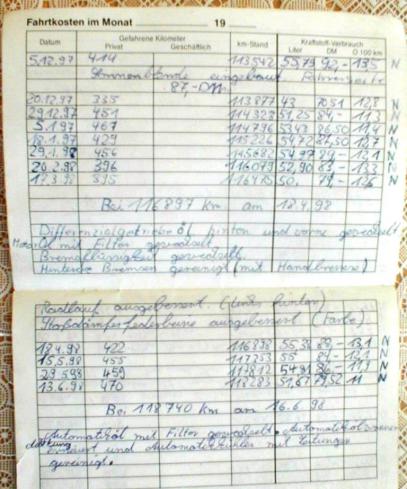 Fahrtkosten im Monat 19
Datum Gefahrene Kilometer Privat Geschäftlich km-Stand Kraftstoff-Verbrauch Liter DM Ö 100 km
5.12.97 414 113542 55,79 92,- 13,5 N
Sonnenblende eingebaut
87,-DM.
20.12.97 335 113877 43 70,51 12,8 N
29.12.97 451 114328 51,25 84,- 11,3 N
5.1.97 467 114796 53,43 86,50 11,4 N
18.1.97 429 115226 54,72 12,7 N
29.1.98 456 12,1 N
20.2.98 396 116079 52,90 13,3 N
395 116475 50, N
Bei 116897 km am 18.4.98
Differenzialgetriebeöl hinten und vorne gewechselt
Motoröl mit Filter gewechselt.
Bremsflüssigkeit gewechselt.
Hintere Bremsen gereinigt (mit Handbremse)
Radlauf ausgebessert. (links hinten)
Stoßdämpferfederbeine ausgebessert (Farbe).
18.4.98 422 116898 55,38 89,- 13,1 N
15.5.98 455 117353 55 84,- 12,1 N
29.5.98 459 117812 54,91 86,- 11,9 N
13.6.98 470 118283 51,67 79,52 11 N
Bei 118740 km am 16.6.98
Automatiköl mit Filter gewechselt. Automatikölwannen
dichtung erneuert und Automatikkühler mit Leitungen
gereinigt.